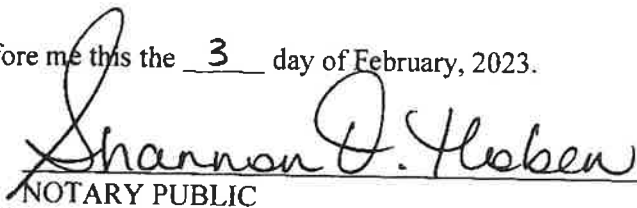 fore me this the 3 day of February, 2023.
Shannon D.
NOTARY PUBLIC